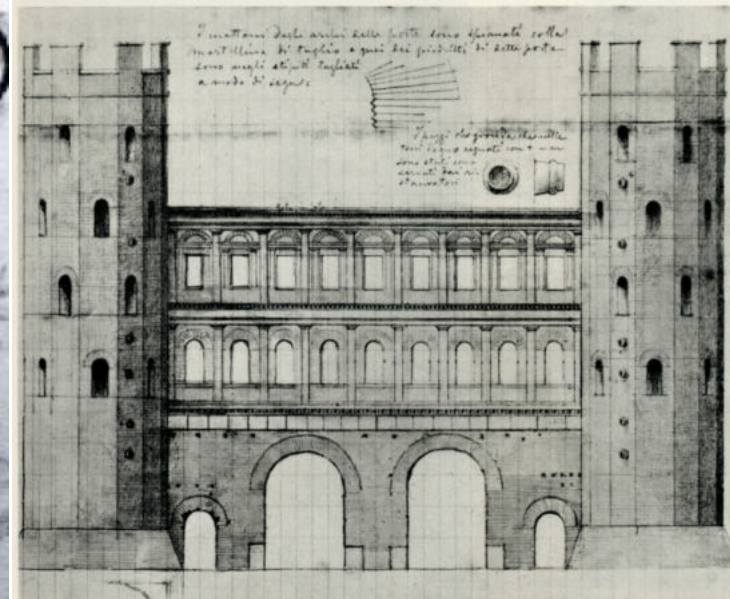 I mattoni degli archi delle porte sono spianati colla
martellina di taglio e quei dei piedritti di dette porte
sono negli stipiti tagliati
a modo di sega:
I pezzi di gronda che nelle
torri sono segnati con + non
sono stati con
servati dai ri
stauratori